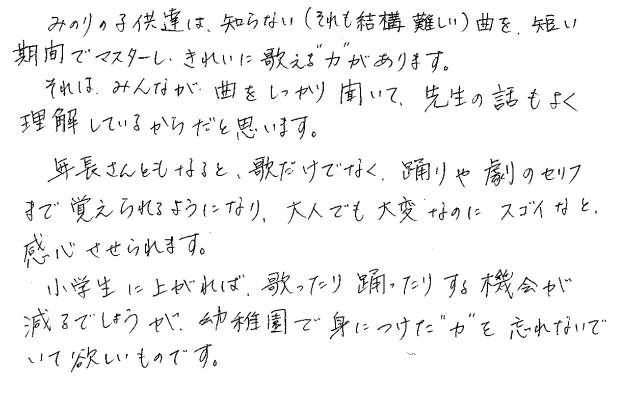 みのりの子供達は、知らない(それも結構難しい)曲を、短い
期間でマスターし、きれいに歌える"力"があります。
それは、みんなが、曲をしっかり聞いて、先生の話もよく
理解しているからだと思います。
年長さんともなると、歌だけでなく、踊りや劇のセリフ
まで覚えられるようになり、大人でも大変なのにスゴイなと、
感心させられます。
小学生に上がれば、歌ったり踊ったりする機会が
減るでしょうが、幼稚園で身につけた"力"を忘れないで
いて欲しいものです。